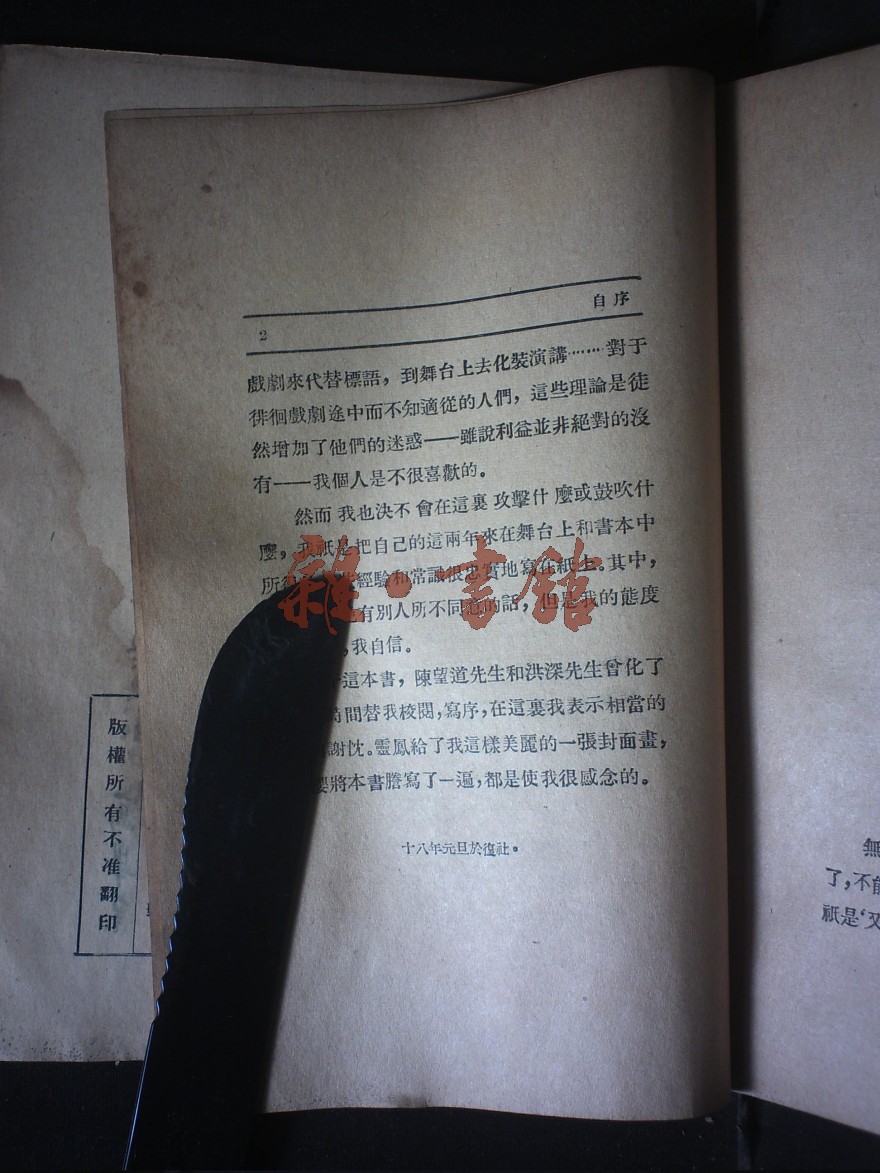 2 自序
戲劇來代替標語，到舞台上去化裝演講……對于
徘徊戲劇途中而不知適從的人們，這些理論是徒
然增加了他們的迷惑——雖說利益並非絕對的沒
有——我個人是不很喜歡的。
然而我也決不會在這裏攻擊什麼或鼓吹什
麼，我祇是把自己的這兩年來在舞台上和書本中
所 經驗和常識很忠實地寫在紙上。其中，
有別人所不同意的話，但是我的態度
，我自信。
這本書，陳望道先生和洪深先生曾化了
時間替我校閱，寫序，在這裏我表示相當的
謝忱。靈鳳給了我這樣美麗的一張封面畫，
將本書謄寫了一遍，都是使我很感念的。
十八年元旦於復社。
版權所有不准翻印
無
了，不能
祇是‘又
雜·書館